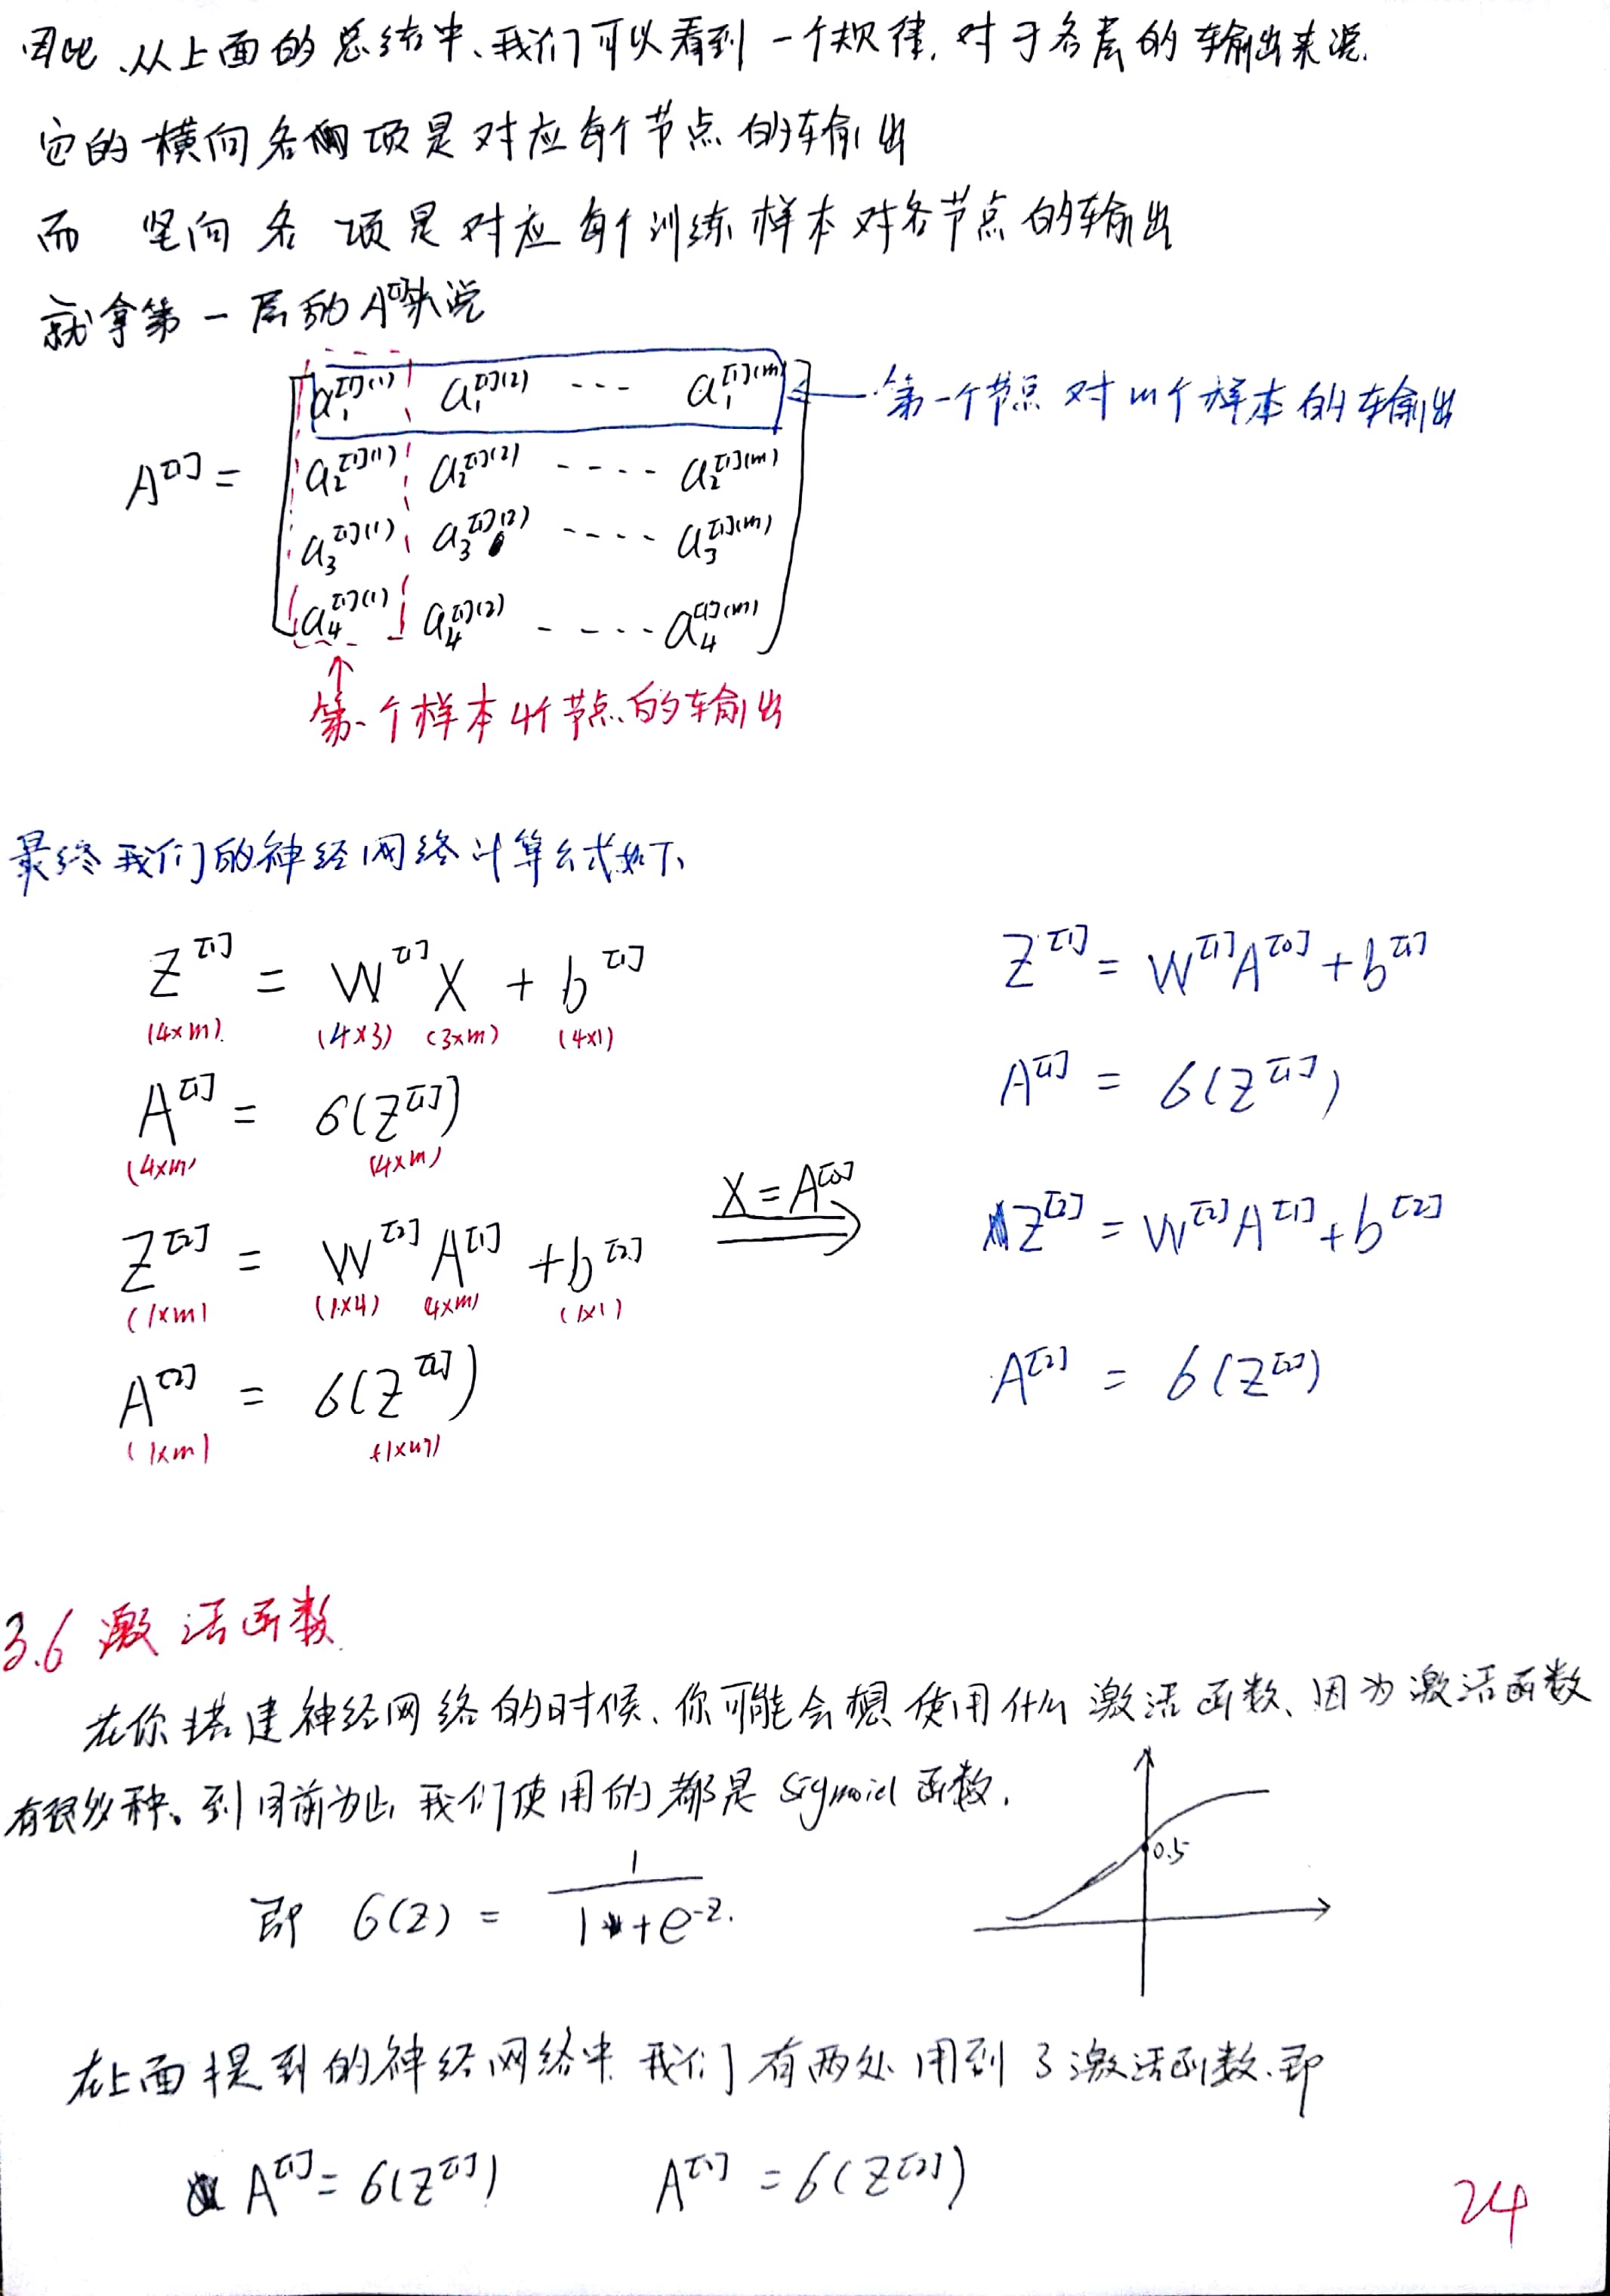 因此、从上面的总结中、我们可以看到一个规律, 对于各层的输出来说.
它的横向各项是对应每个节点的输出
而 竖向各项是对应每个训练样本对各节点的输出
就拿第一层的A^[1]来说
A^[1] =
a₁^[1](1) a₁^[1](2) --- a₁^[1](m) ← 第一个节点对m个样本的输出
a₂^[1](1) a₂^[1](2) ---- a₂^[1](m)
a₃^[1](1) a₃^[1](2) ---- a₃^[1](m)
a₄^[1](1) a₄^[1](2) ----- a₄^[1](m)
↑
第一个样本4个节点的输出
最终我们的神经网络计算公式如下、
Z^[1] = W^[1] X + b^[1]
(4×m) (4×3) (3×m) (4×1)
A^[1] = σ(Z^[1])
(4×m) (4×m)
Z^[2] = W^[2] A^[1] + b^[2]
(1×m) (1×4) (4×m) (1×1)
A^[2] = σ(Z^[2])
(1×m) (1×m)
X = A^[0]
Z^[1] = W^[1]A^[0] + b^[1]
A^[1] = σ(Z^[1])
Z^[2] = W^[2]A^[1] + b^[2]
A^[2] = σ(Z^[2])
3.6 激活函数
在你搭建神经网络的时候、你可能会想使用什么激活函数、因为激活函数
有很多种。到目前为止, 我们使用的都是sigmoid函数.
0.5
即 σ(z) = 1/(1+e^-z).
在上面提到的神经网络中. 我们有两处用到了激活函数.即
A^[1] = σ(Z^[1]) A^[1] = σ(Z^[2])
24